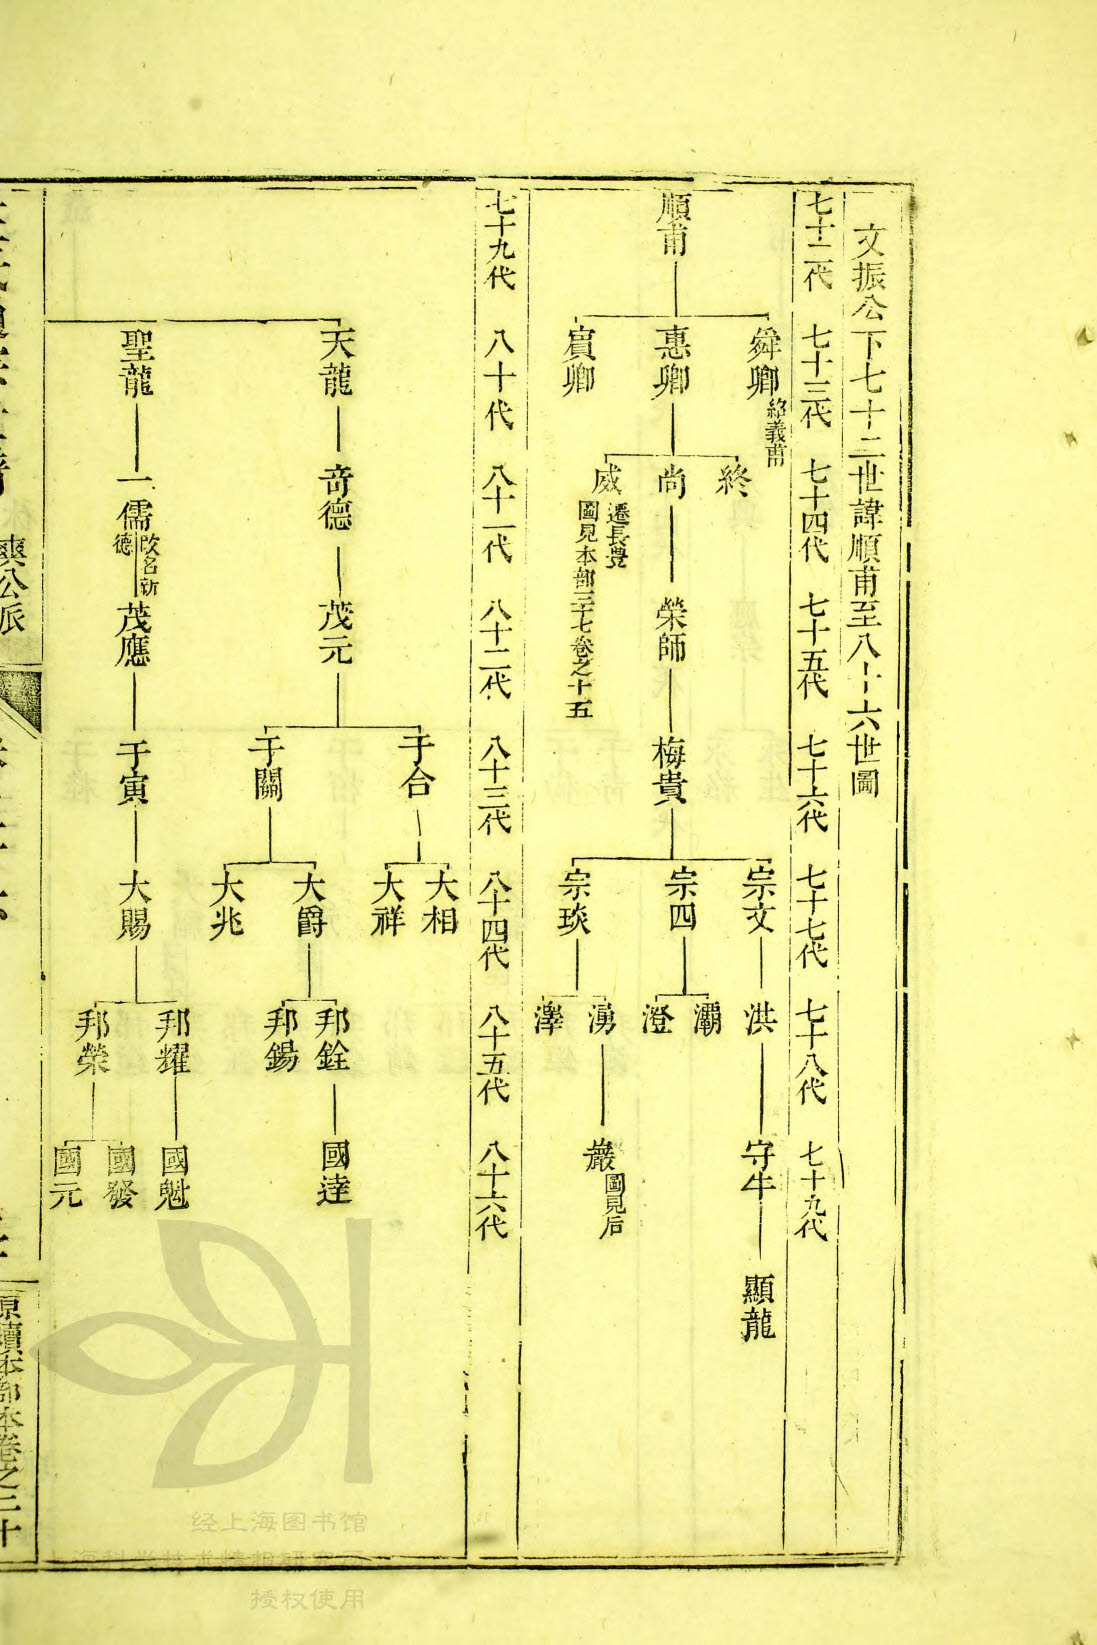 文振公下七十二世諱順甫至八十六世圖
七十二代 七十三代 七十四代 七十五代 七十六代 七十七代 七十八代 七十九代
順甫
舜卿
紹義甫
惠卿
賓卿
終
尚
威
遷長豊
圖見本部三十七卷之十五
榮師
梅貴
宗文
宗四
宗琰
洪
灞
澄
湧
澤
守牛
巖
圖見后
顯龍
七十九代 八十代 八十一代 八十二代 八十三代 八十四代 八十五代 八十六代
天龍
聖龍
奇德
一儒
改名新
德
茂元
茂應
于合
于關
于寅
大相
大祥
大爵
大兆
大賜
邦銓
邦錫
邦耀
邦榮
國逹
國魁
國發
國元
爽公派
原續本部本卷之二十
经上海图书馆
授权使用